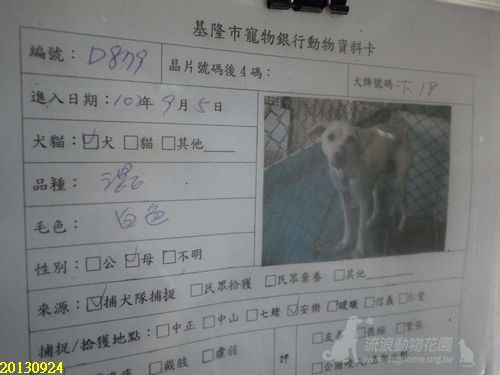 基隆市寵物銀行動物資料卡
編號： D879 晶片號碼後4碼： 犬牌號碼：下18
進入日期：102年9月5日
犬貓：☑犬 □貓 □其他____
品種： 混
毛色： 白色
性別：□公 ☑母 □不明
來源：☑捕犬隊捕捉 □民眾拾獲 □民眾棄養 □其他____
捕捉/拾獲地點：□中正 □中山 □七堵 ☑安樂 □暖暖 □信義 □仁愛
□截肢 □虛弱 評
流浪動物花園
www.doghome.org.tw
20130924